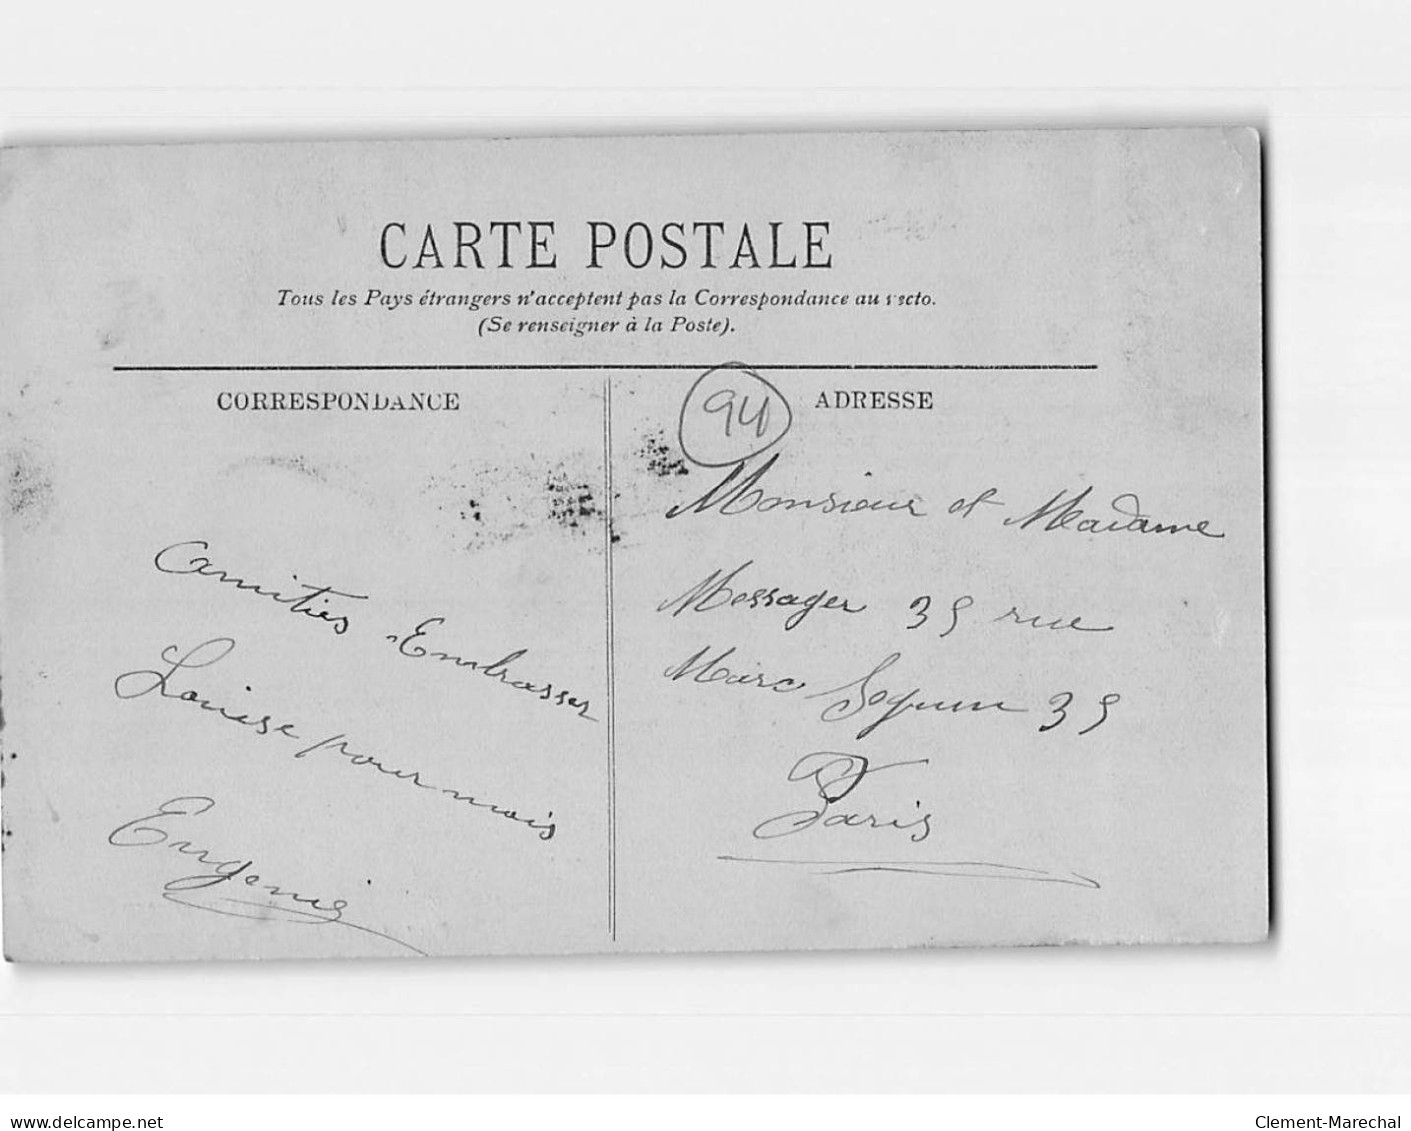 CARTE POSTALE
Tous les Pays étrangers n'acceptent pas la Correspondance au recto.
(Se renseigner à la Poste).
CORRESPONDANCE
Amitiés Embrasser
Louise pour mois
Eugenie
94
ADRESSE
Monsieur et Madame
Messager 35 rue
Marc Seguin 35
Paris
www.delcampe.net
Clement-Marechal